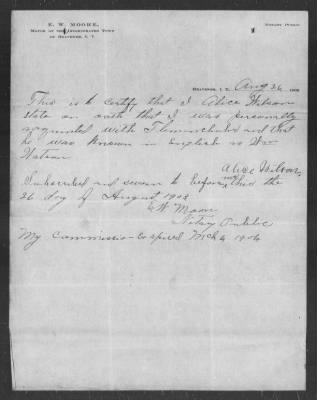 E. W. MOORE,
MAYOR OF THE INCORPORATED TOWN
OF BRAGGS, I. T.
NOTARY PUBLIC
I. T. Aug 26 190
This is to certify that I Alice Wilson
state on oath that I was personally
acquainted with and that
he was known in English as Wm
Watson
Alice Wilson
Subscribed and sworn to before me this the
26 day of August 1903
E W Moore
Notary Public
My Commission Expires Mch 6 1906